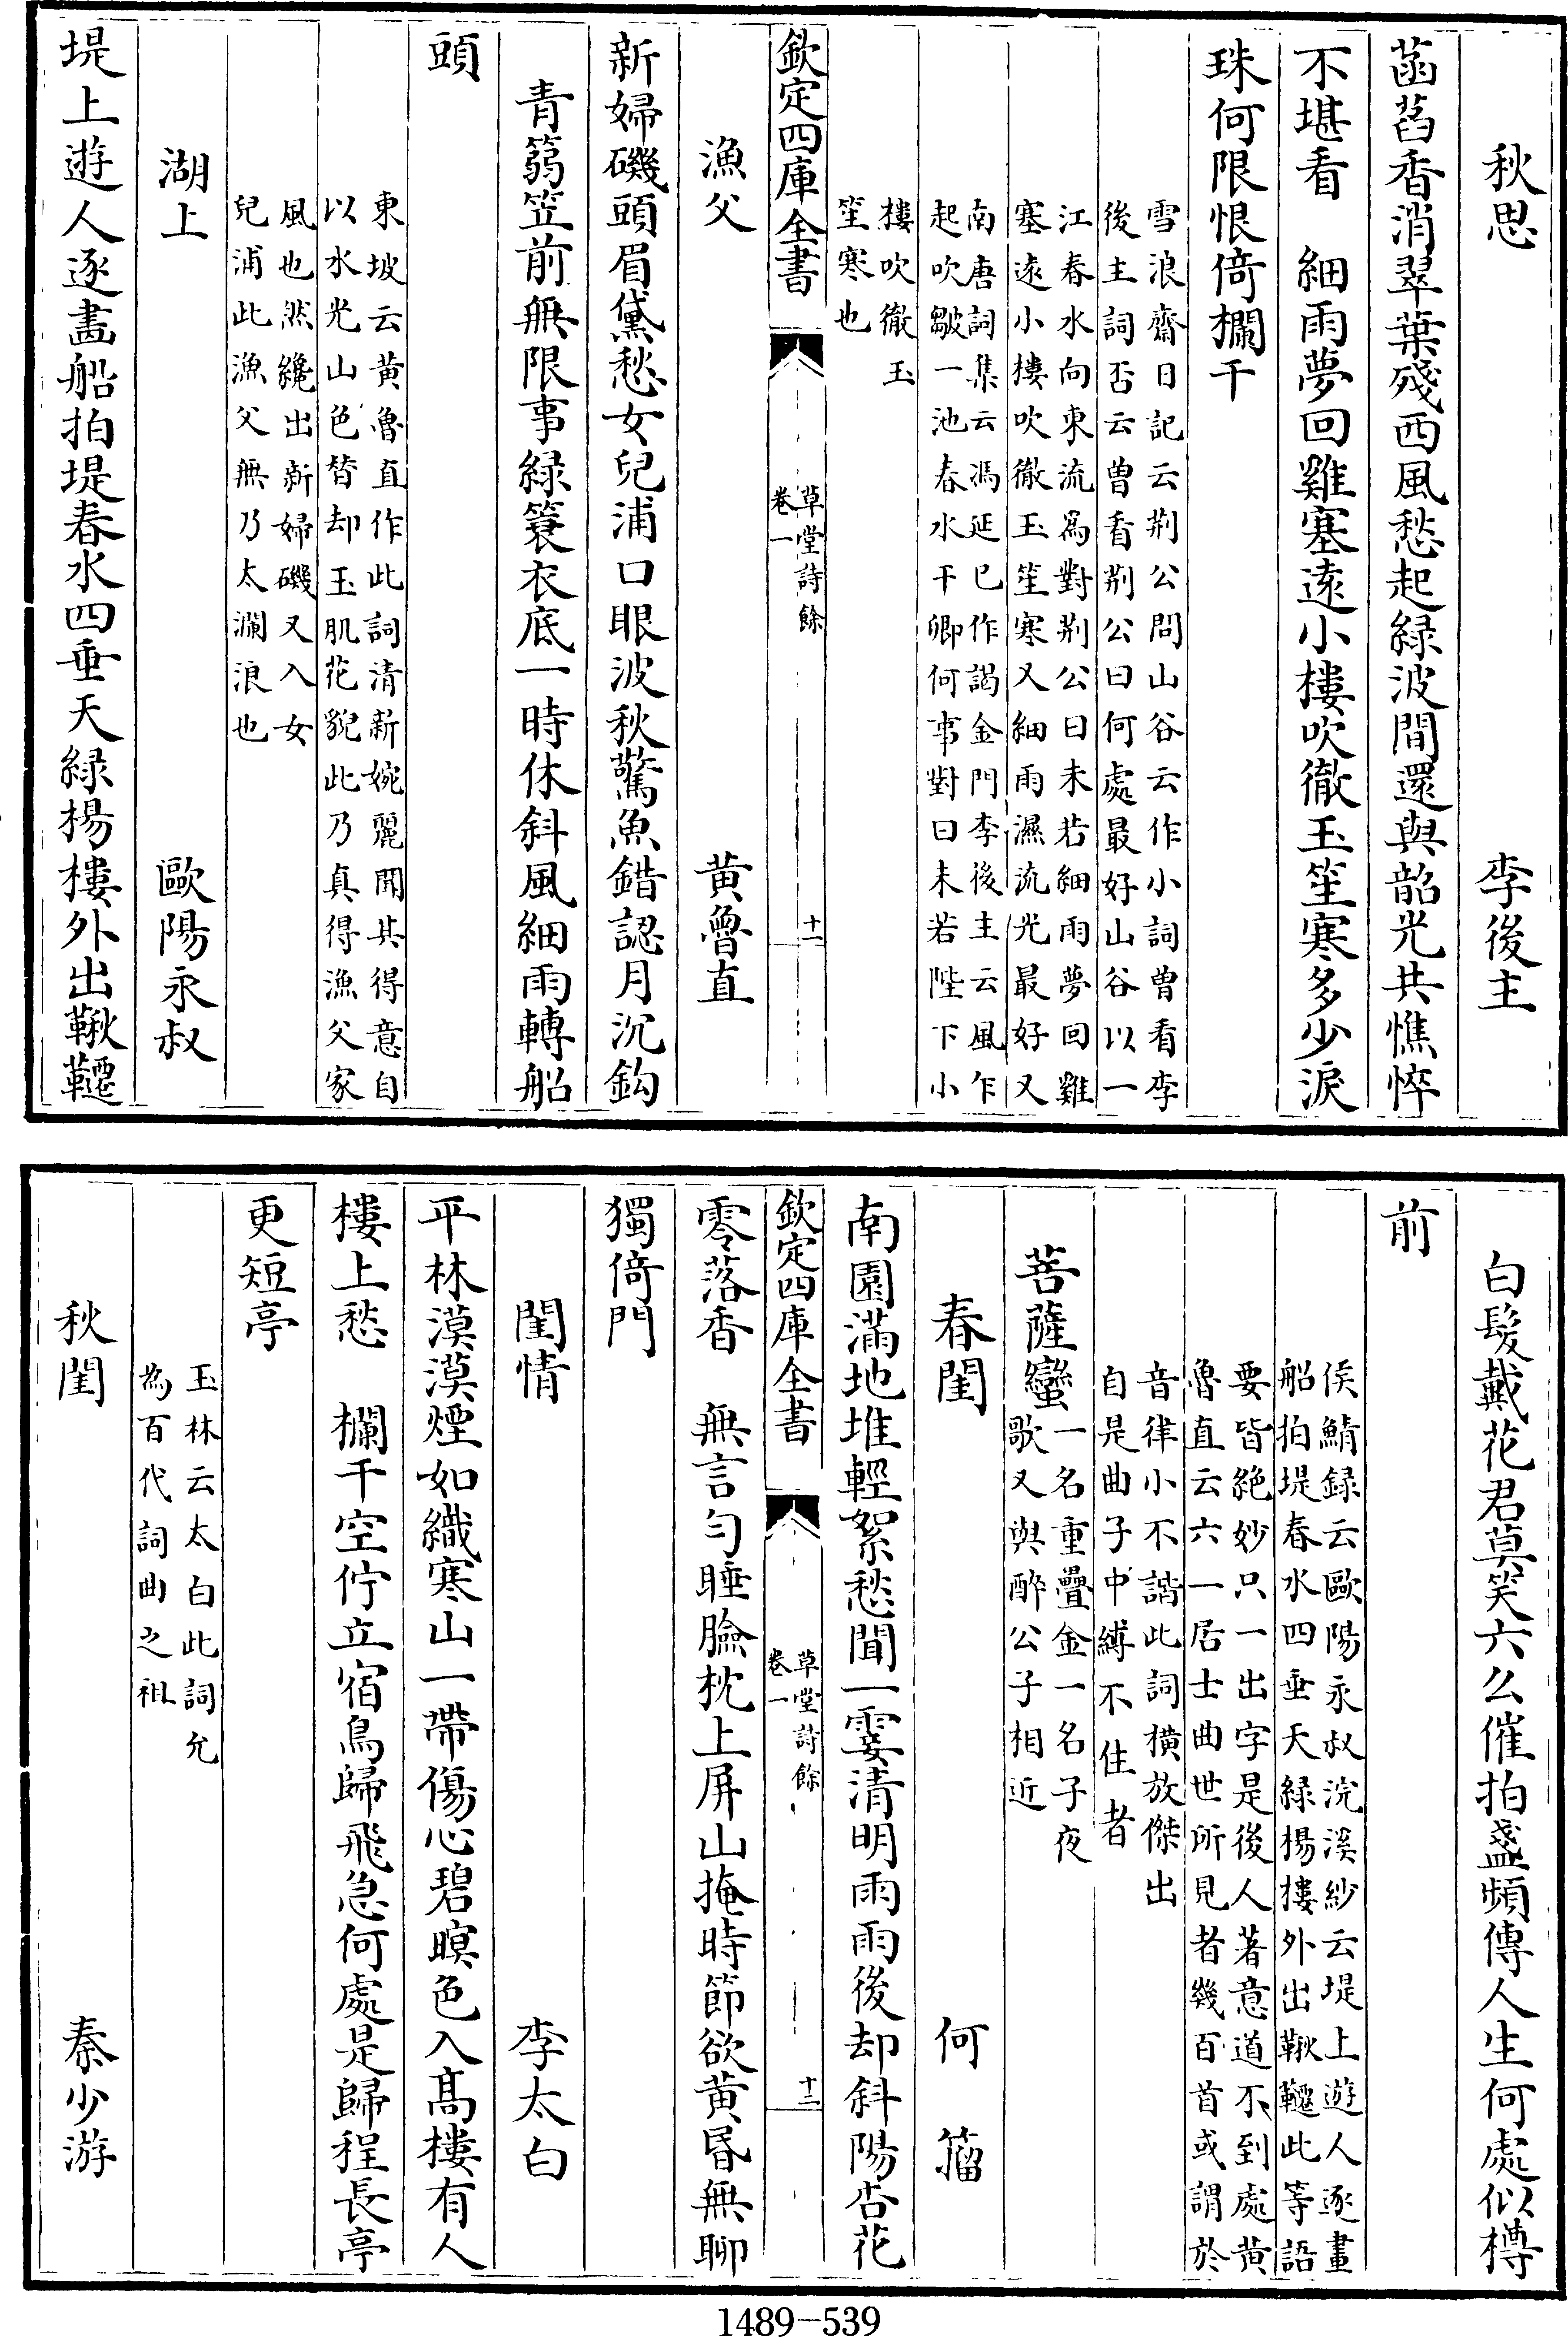 秋思　李後主
菡萏香消翠葉殘西風愁起緑波間還與韶光共憔悴
不堪看　細雨夢回雞塞逺小樓吹徹玉笙寒多少淚
珠何限恨倚欄干
雪浪齋日記云荆公問山谷云作小詞曽看李
後主詞否云曽看荆公曰何處最好山谷以一
江春水向東流為對荆公曰未若細雨夢回雞
塞逺小樓吹徹玉笙寒又細雨濕流光最好又
南唐詞集云馮延巳作謁金門李後主云風乍
起吹皺一池春水干卿何事對曰未若陛下小
樓吹徹玉
笙寒也
欽定四庫全書
草堂詩餘
卷一
十一
漁父　黄魯直
新婦磯頭眉黛愁女兒浦口眼波秋驚魚錯認月沉鈎
青篛笠前無限事緑蓑衣底一時休斜風細雨轉船
頭
東坡云黄魯直作此詞清新婉麗聞其得意自
以水光山色替却玉肌花貌此乃真得漁父家
風也然纔出新婦磯又入女
兒浦此漁父無乃太瀾浪也
湖上　歐陽永叔
堤上遊人逐畵船拍堤春水四垂天緑楊樓外出鞦韆
白髮戴花君莫笑六么催拍盞頻傳人生何處似樽
前
侯鯖録云歐陽永叔浣溪紗云堤上遊人逐畫
船拍堤春水四垂天緑楊樓外出鞦韆此等語
要皆絶妙只一出字是後人著意道不到處黄
魯直云六一居士曲世所見者幾百首或謂於
音律小不諧此詞横放傑出
自是曲子中縛不住者
菩薩蠻
一名重疊金一名子夜
歌又與醉公子相近
春閨　何籀
南園滿地堆輕絮愁聞一霎清明雨雨後却斜陽杏花
欽定四庫全書
草堂詩餘
卷一
十二
零落香　無言匀睡臉枕上屏山掩時節欲黄昏無聊
獨倚門
閨情　李太白
平林漠漠煙如織寒山一帶傷心碧暝色入髙樓有人
樓上愁　欄干空佇立宿鳥歸飛急何處是歸程長亭
更短亭
玉林云太白此詞允
為百代詞曲之祖
秋閨　秦少游
1489-539